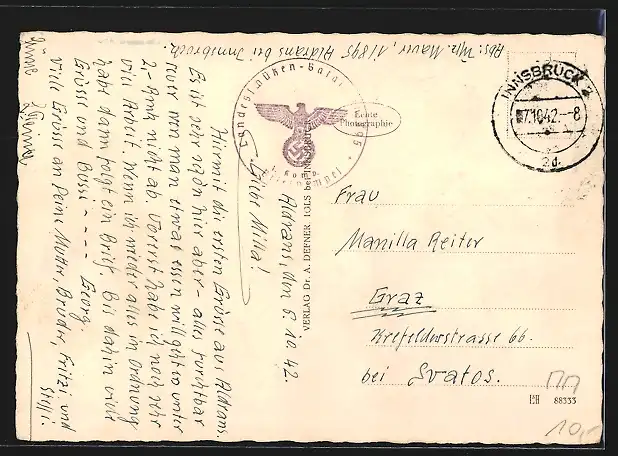 Abs: Wm. Mauer, 1/895 Aldrans bei Innsbruck.
Aldrans, den 6.10.42.
Liebe Milla!
Hiermit die ersten Grüsse aus Aldrans.
Es ist sehr schön hier aber – alles furchtbar
teuer wenn man etwas essen will geht es unter
2,- RMk nicht ab. Vorerst hab ich noch sehr
viel Arbeit. Wenn ich wieder alles in Ordnung
habe dann folgt ein Brief. Bis dahin viele
Grüsse und Küsse - - - - Georg.
Viele Grüsse an Deine Mutter, Bruder, Fritzi und
Steffi.
Landesschützen-Batal 895
Echte
Photographie
INNSBRUCK 2
-7.10.42.--8
2d.
VERLAG Dr. A. DEFNER IGLS bei INNSBRUCK
Frau
Manilla Reiter
Graz
Krefelderstrasse 66.
bei Svatos.
88333
10,-